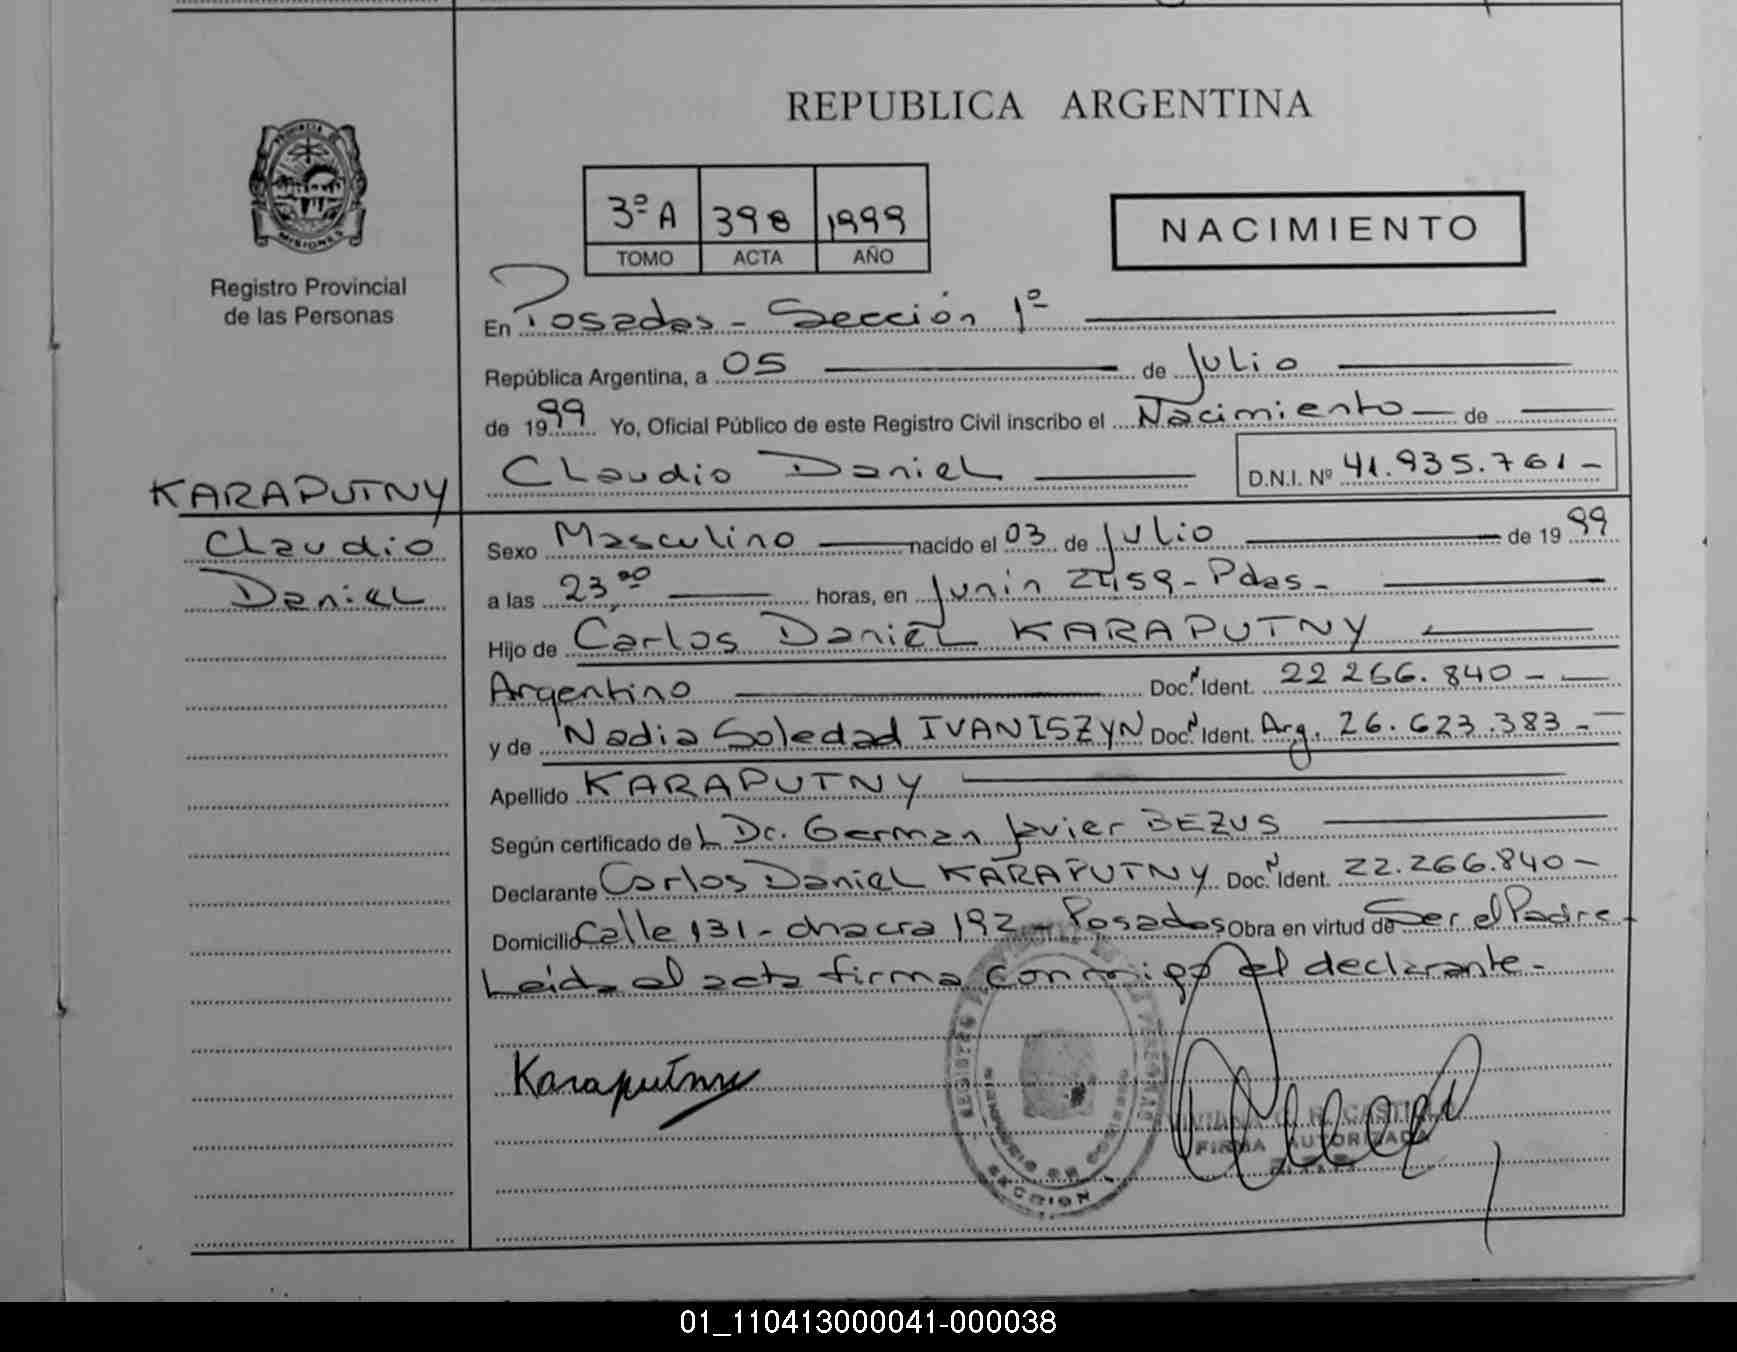 REPUBLICA ARGENTINA
PROVINCIA DE
MISIONES
Registro Provincial
de las Personas
3º A 398 1999
TOMO ACTA AÑO
NACIMIENTO
En Posadas - Sección 1º
República Argentina, a 05 de Julio
de 1999 Yo, Oficial Público de este Registro Civil inscribo el Nacimiento de
Claudio Daniel D.N.I. Nº 41.935.761-
KARAPUTNY
Claudio
Daniel
Sexo Masculino nacido el 03 de Julio de 1999
a las 23,00 horas, en Junin 2159 - Pdas-
Hijo de Carlos Daniel KARAPUTNY
Argentino Doc. N Ident. 22 266.840-
y de Nadia Soledad IVANISZYN Doc. N Ident. Arg. 26.623.383-
Apellido KARAPUTNY
Según certificado del Dr. German Javier BEZUS
Declarante Carlos Daniel KARAPUTNY Doc. N Ident. 22.266.840-
Domicilio Calle 131 - chacra 192 - Posadas Obra en virtud de Ser el Padre
Leida el acta firma conmigo el declarante-
Karaputny
FIRMA AUTORIZADA
SECCION
01_110413000041-000038